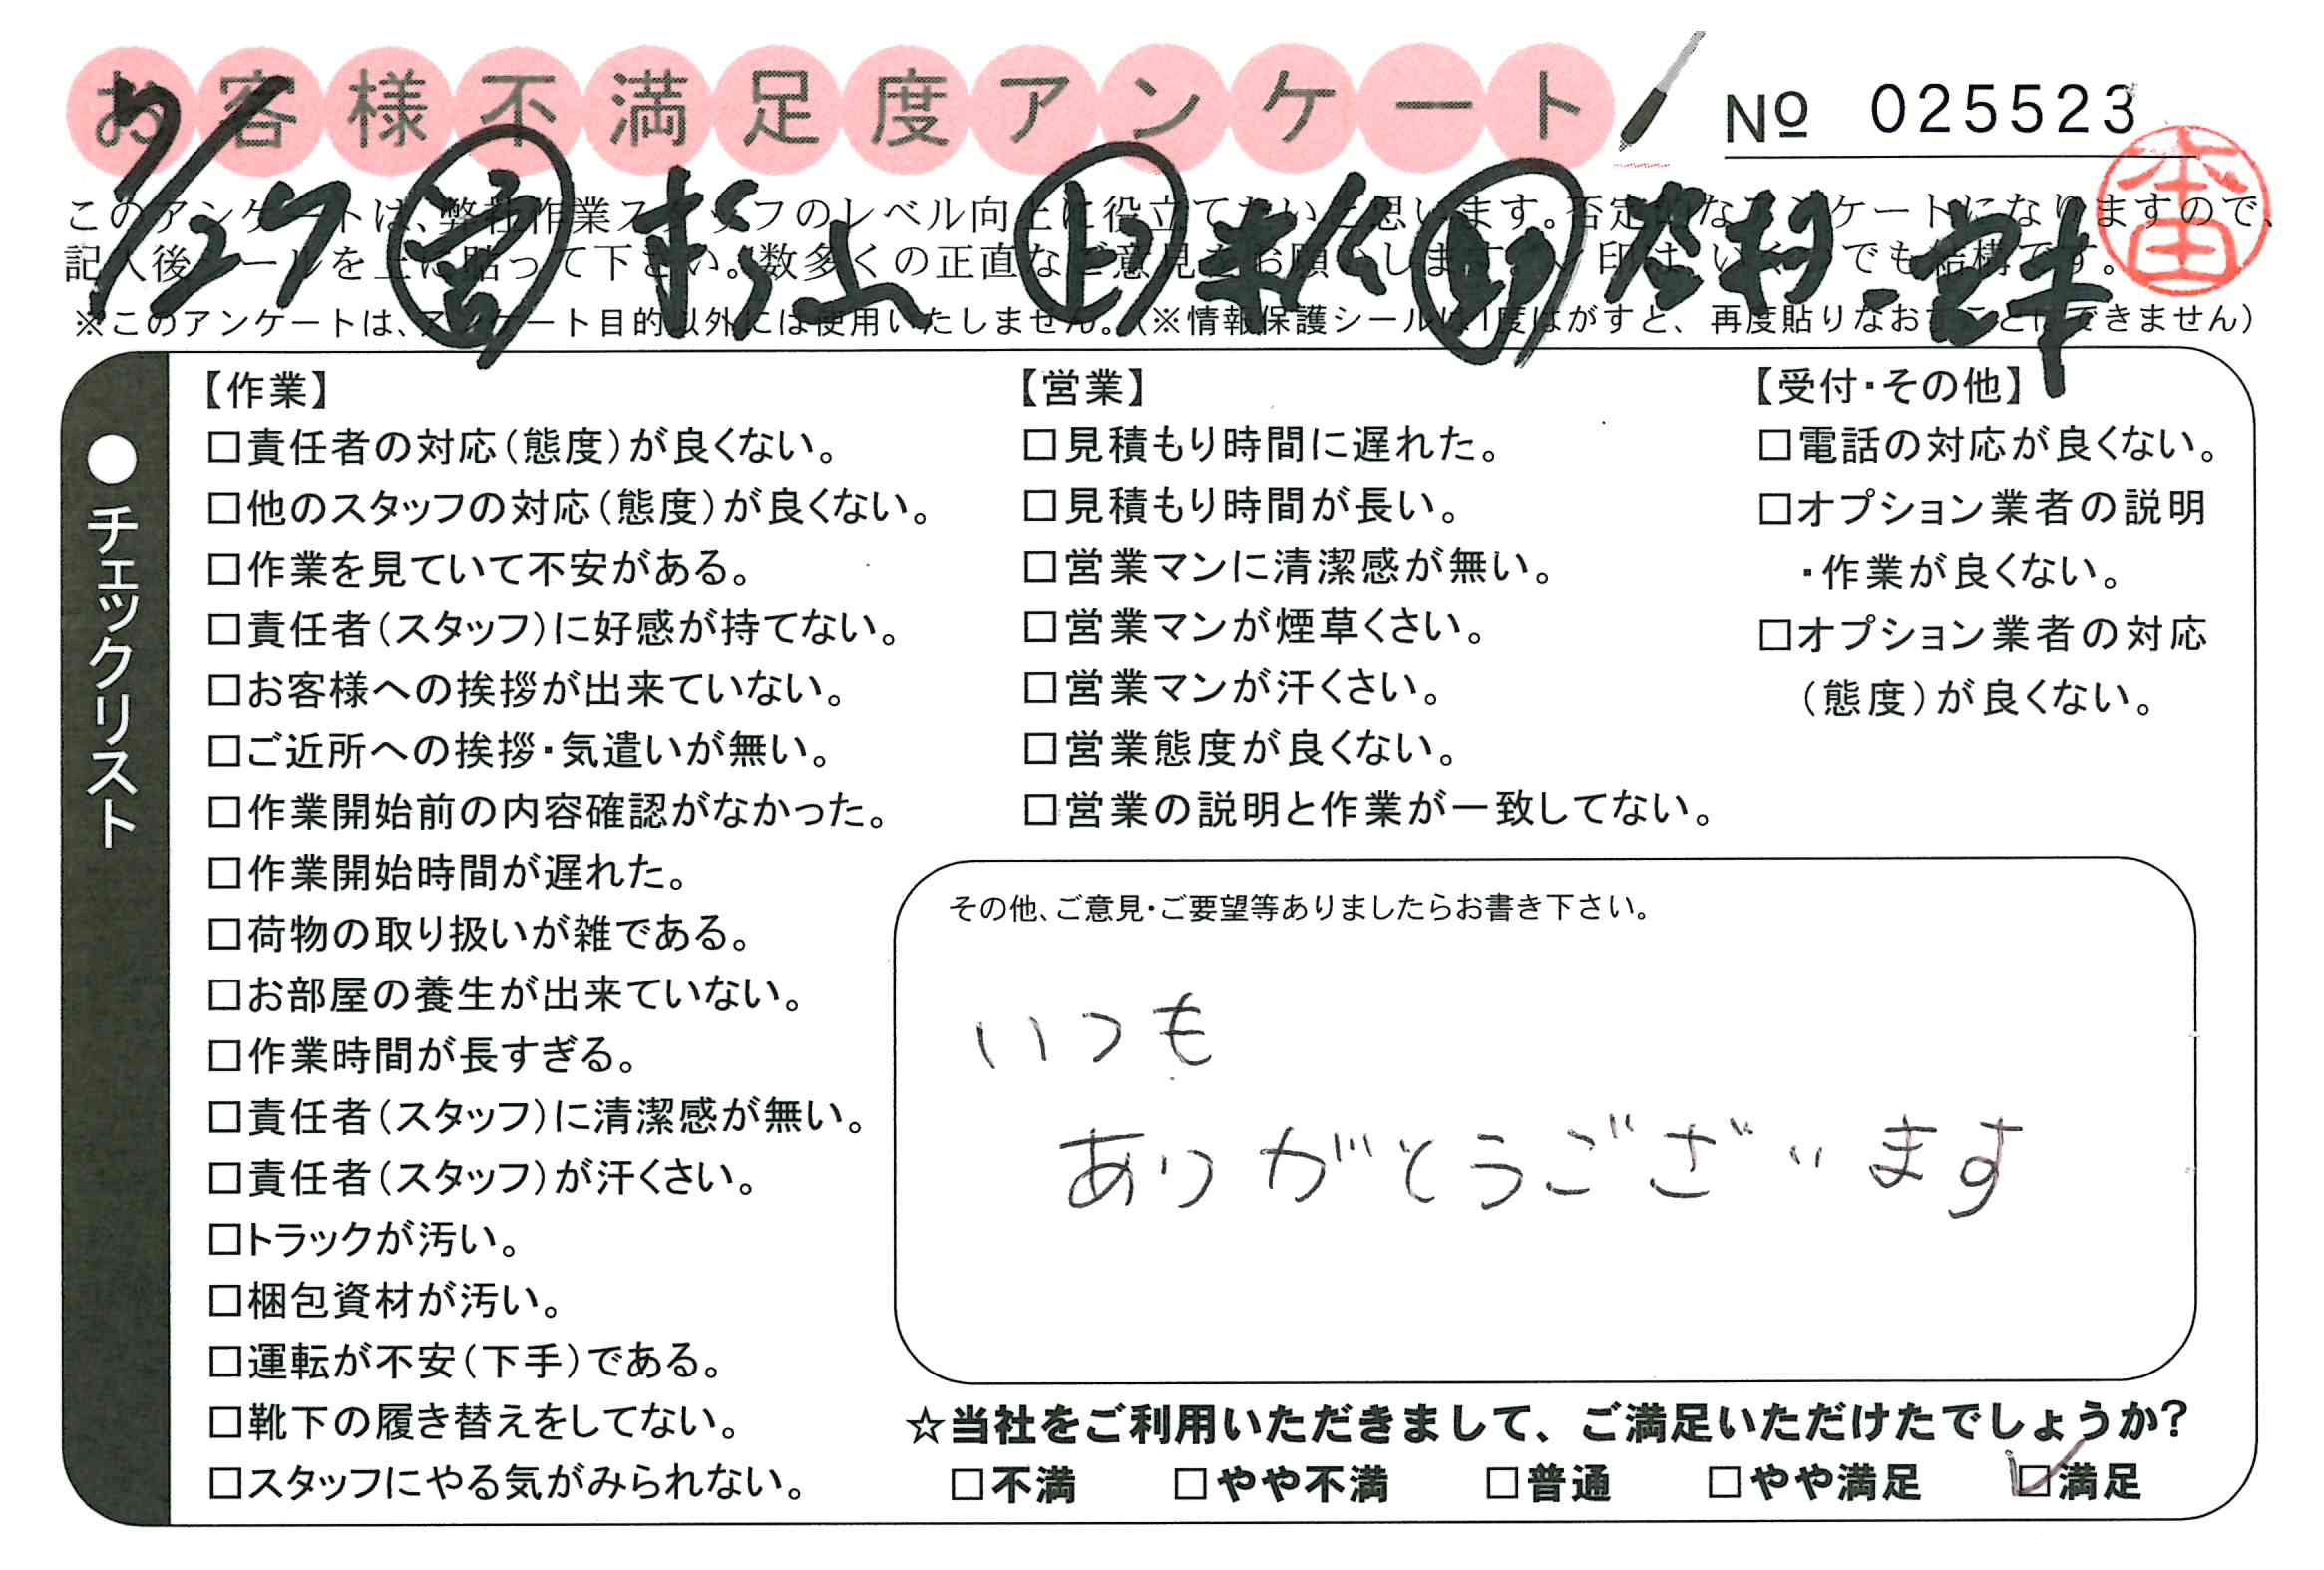 お客様不満足度アンケート
No 025523
7/27 営 杉山 上 末松 助 岩村.宮本
本田
このアンケートは、弊社作業スタッフのレベル向上に役立てたいと思います。否定的なアンケートになりますので、
記入後シールを上に貼って下さい。数多くの正直なご意見をお願いします。レ印はいくつでも結構です。
※このアンケートは、アンケート目的以外には使用いたしません。(※情報保護シールは1度はがすと、再度貼りなおすことはできません)
●チェックリスト
【作業】
□責任者の対応(態度)が良くない。
□他のスタッフの対応(態度)が良くない。
□作業を見ていて不安がある。
□責任者(スタッフ)に好感が持てない。
□お客様への挨拶が出来ていない。
□ご近所への挨拶・気遣いが無い。
□作業開始前の内容確認がなかった。
□作業開始時間が遅れた。
□荷物の取り扱いが雑である。
□お部屋の養生が出来ていない。
□作業時間が長すぎる。
□責任者(スタッフ)に清潔感が無い。
□責任者(スタッフ)が汗くさい。
□トラックが汚い。
□梱包資材が汚い。
□運転が不安(下手)である。
□靴下の履き替えをしてない。
□スタッフにやる気がみられない。
【営業】
□見積もり時間に遅れた。
□見積もり時間が長い。
□営業マンに清潔感が無い。
□営業マンが煙草くさい。
□営業マンが汗くさい。
□営業態度が良くない。
□営業の説明と作業が一致してない。
【受付・その他】
□電話の対応が良くない。
□オプション業者の説明
・作業が良くない。
□オプション業者の対応
(態度)が良くない。
その他、ご意見・ご要望等ありましたらお書き下さい。
いつも
ありがとうございます
☆当社をご利用いただきまして、ご満足いただけたでしょうか?
□不満 □やや不満 □普通 □やや満足 ☑満足